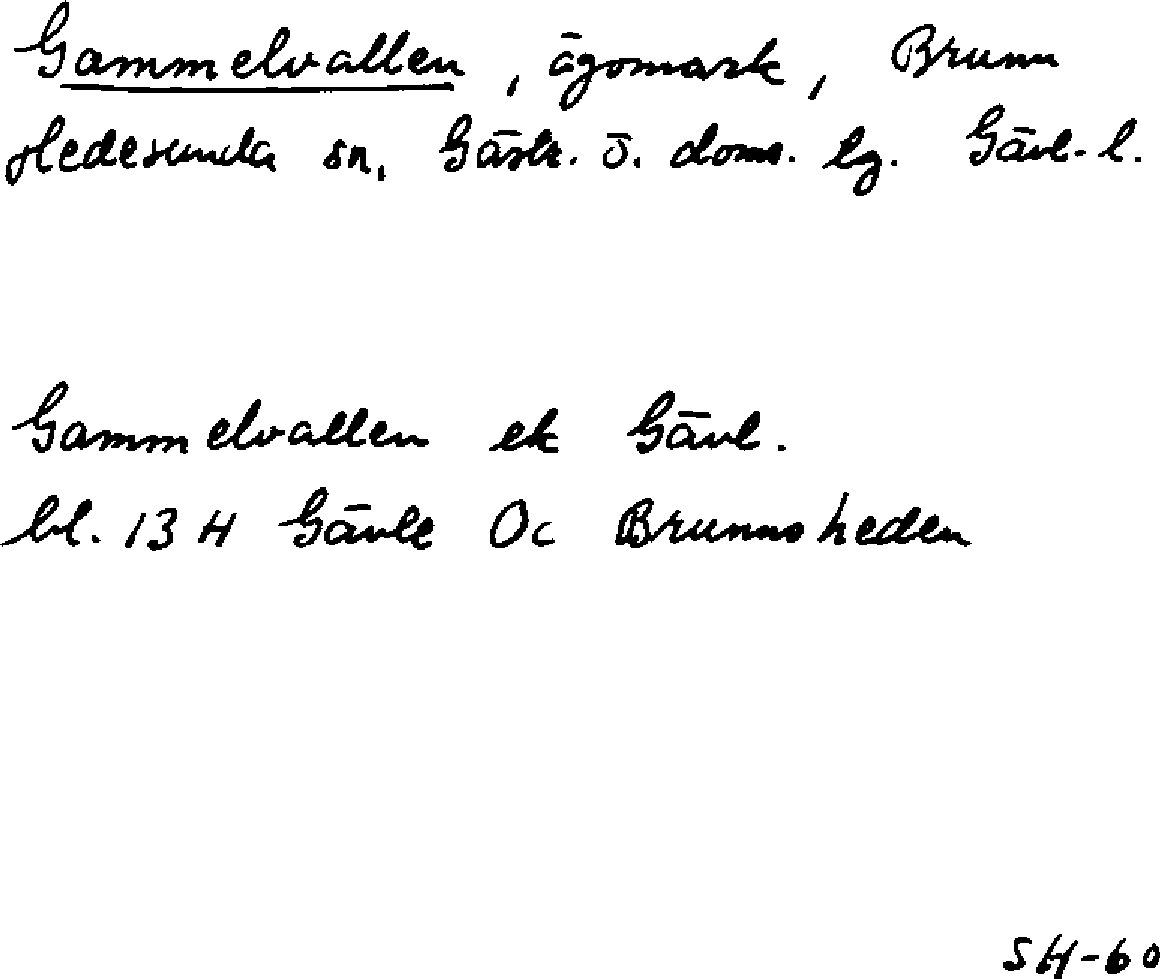 Gammelvallen, ägomark, Brunn
Hedesunda sn, Gästr. ö. doms. lg. Gävl-l.
Gammelvallen ek Gävl.
bl. 13 H Gävle Oc Brunnsheden
SH-60